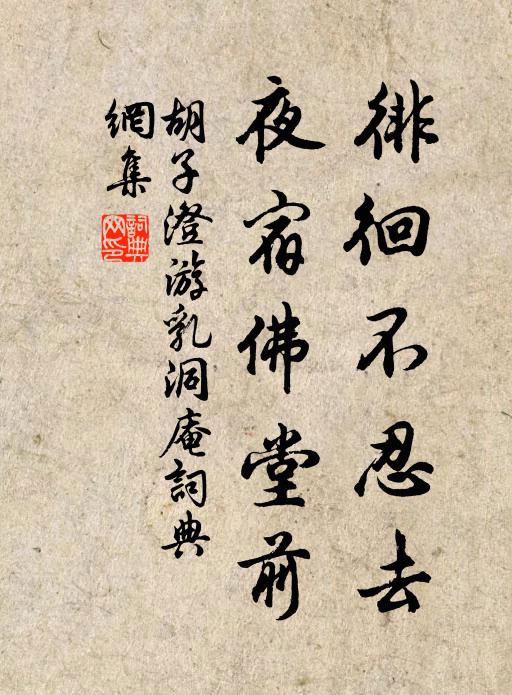 徘徊不忍去
夜宿佛堂前
胡子澄游乳洞庵詞典
網集
詞典網印